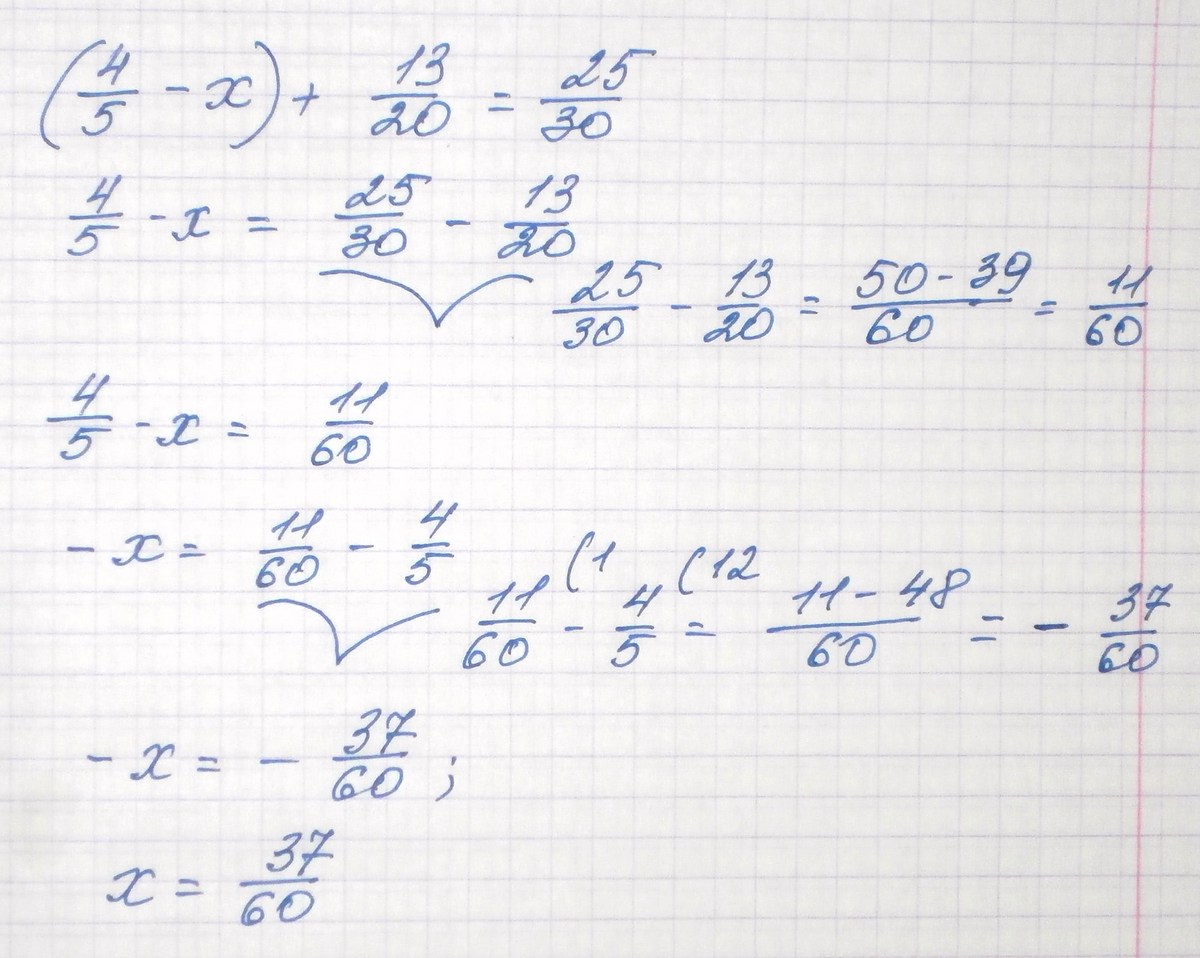 (4/5 - x) + 13/20 = 25/30
4/5 - x = 25/30 - 13/20
25/30 - 13/20 = (50 - 39)/60 = 11/60
4/5 - x = 11/60
- x = 11/60 - 4/5
11/60 (1 - 4/5 (12 = (11 - 48)/60 = - 37/60
- x = - 37/60 ;
x = 37/60